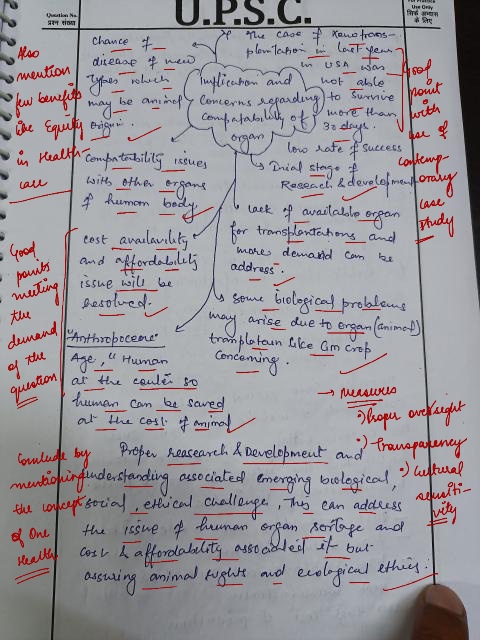 Question No.
प्रश्न संख्या
U.P.S.C.
Use Only
सिर्फ अभ्यास
के लिए
Chance of
disease of new
types which
may be animal
origin.
The case of Xenotrans-
plantation in last year
in USA was
not able
to survive
more than
30 days.
Implication and
concerns regarding
compatability of
organ
Also
mention
few benefits
like Equity
in Health-
care
Good
point
with
use of
contemp-
orary
case
study
Compatability issues
with other organs
of human body
low rate of success
Inial stage of
Reseach & development
lack of available organ
for transplantations and
more demand can be
address.
cost availavity
and affordability
issue will be
resolved.
Good
points
meeting
the
demand
of the
question
some biological problems
may arise due to organ (animal)
tranplotain like Gm crop
concerning.
"Anthropocene"
Age, " Human
at the center so
human can be saved
at the cost of animal
→ measures
•) Proper oversight
•) Transparency
•) Cultural
sensiti-
vity
Conclude by
mentioning
the concept
of One
Health
Proper research & Development and
understanding associated emerging biological,
social, ethical challenge, This can address
the issue of human organ sortage and
cost & affordability associated it but
assuring animal rights and ecological ethics.